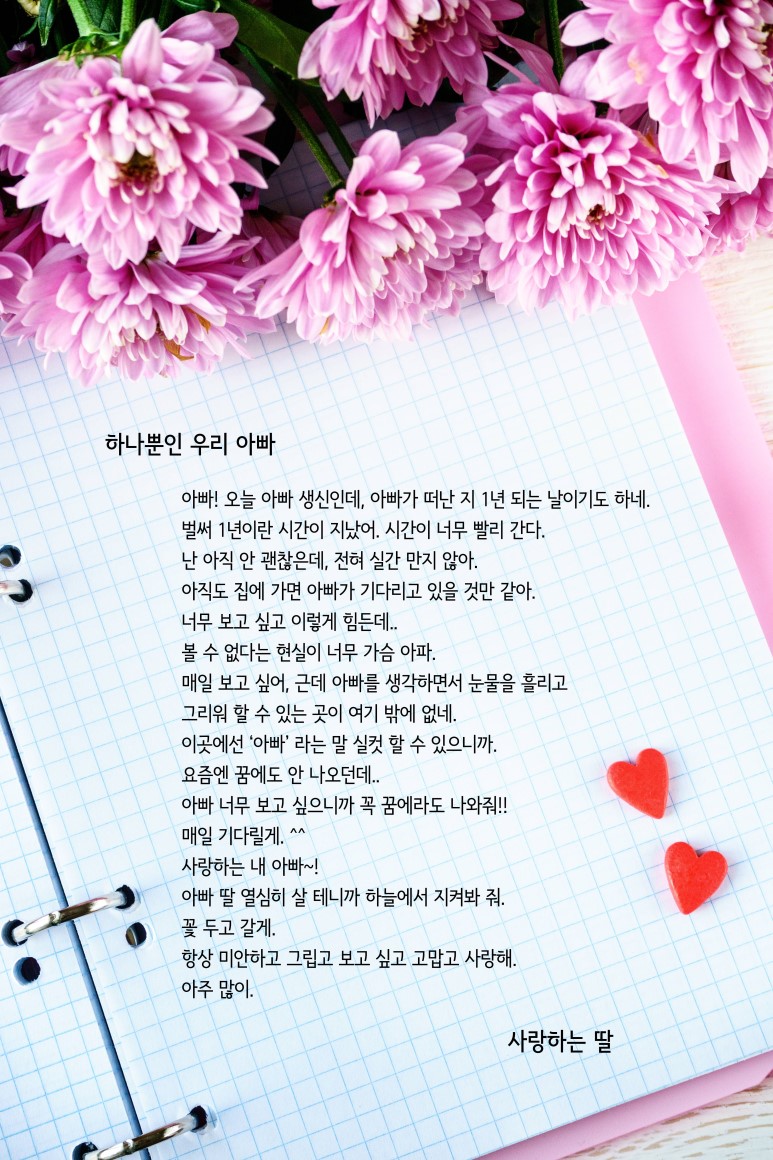 하나뿐인 우리 아빠
아빠! 오늘 아빠 생신인데, 아빠가 떠난 지 1년 되는 날이기도 하네.
벌써 1년이란 시간이 지났어. 시간이 너무 빨리 간다.
난 아직 안 괜찮은데, 전혀 실간 만지 않아.
아직도 집에 가면 아빠가 기다리고 있을 것만 같아.
너무 보고 싶고 이렇게 힘든데..
볼 수 없다는 현실이 너무 가슴 아파.
매일 보고 싶어, 근데 아빠를 생각하면서 눈물을 흘리고
그리워 할 수 있는 곳이 여기 밖에 없네.
이곳에선 ‘아빠’ 라는 말 실컷 할 수 있으니까.
요즘엔 꿈에도 안 나오던데..
아빠 너무 보고 싶으니까 꼭 꿈에라도 나와줘!!
매일 기다릴게. ^^
사랑하는 내 아빠~!
아빠 딸 열심히 살 테니까 하늘에서 지켜봐 줘.
꽃 두고 갈게.
항상 미안하고 그립고 보고 싶고 고맙고 사랑해.
아주 많이.
사랑하는 딸